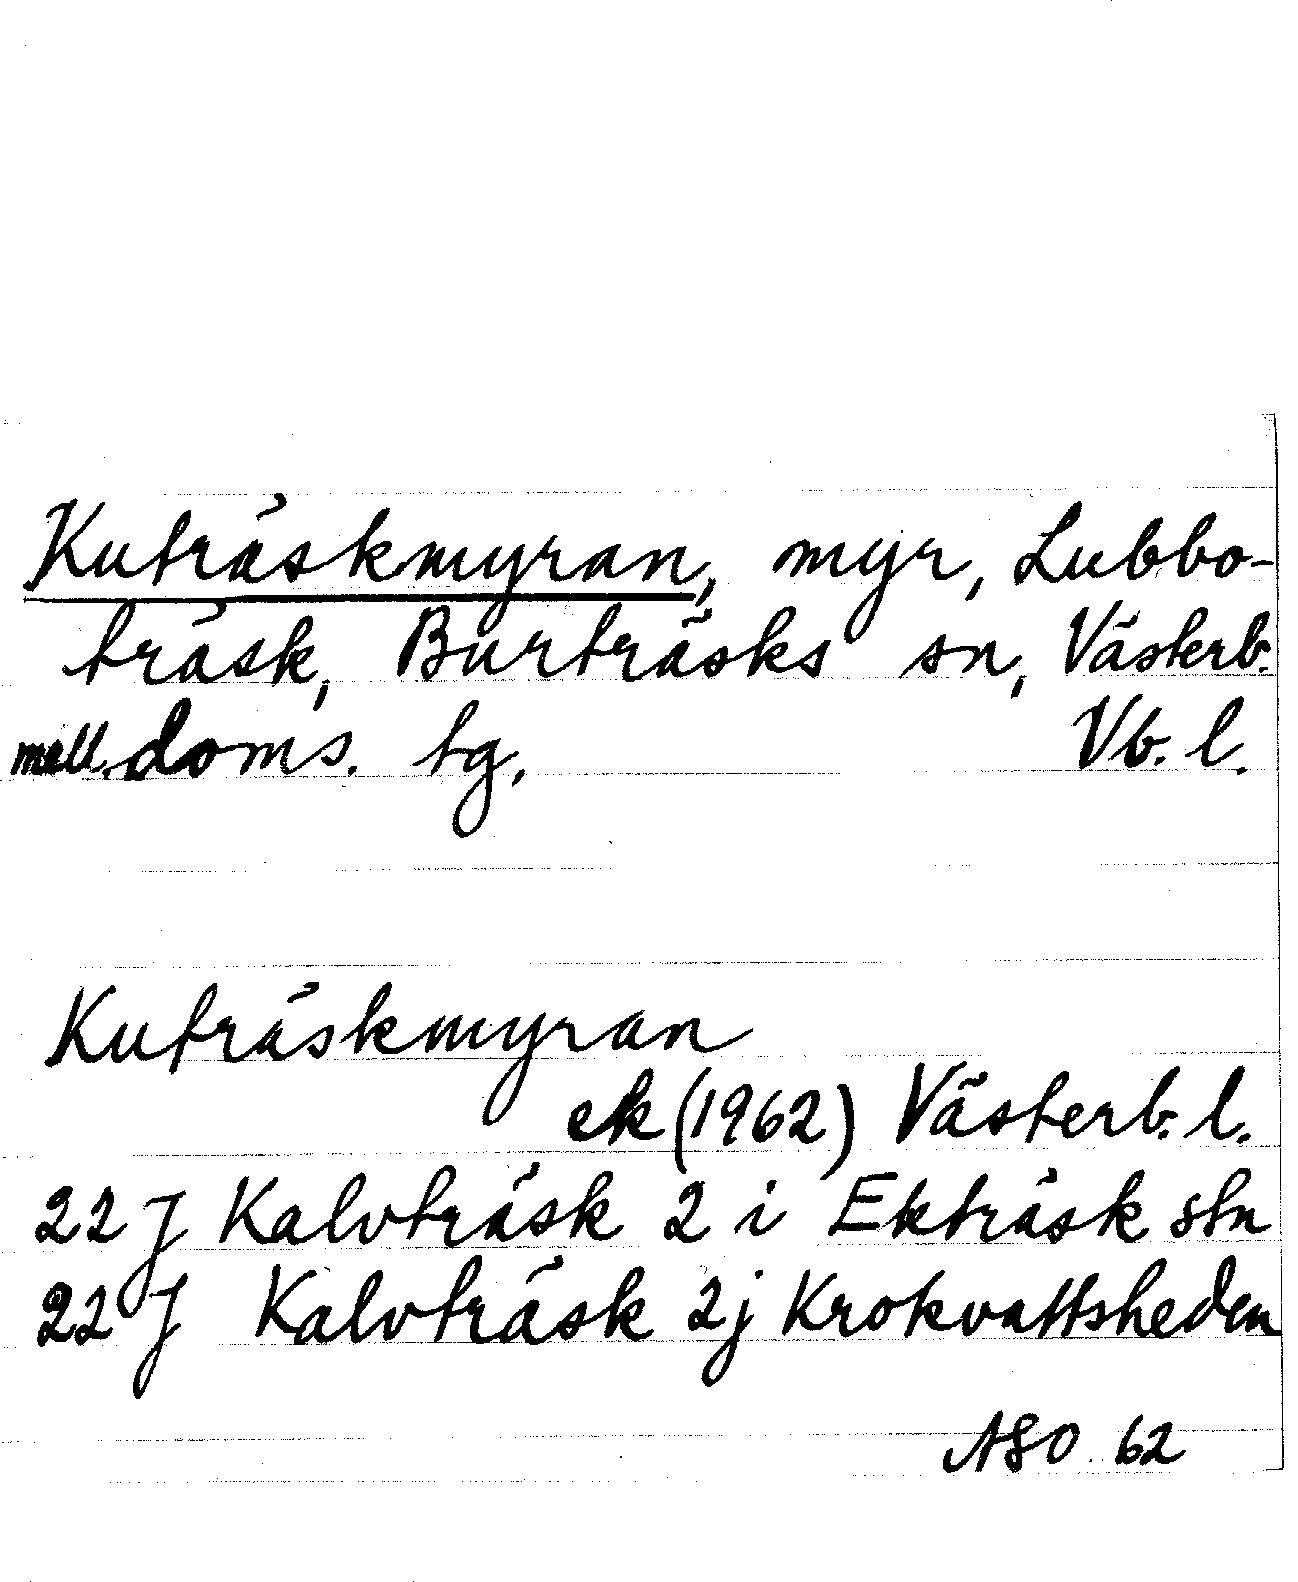 Kuträskmyran, myr, Lubbo-
träsk, Burträsks sn, Västerb.
mell. doms. tg, Vb. l.
Kuträskmyran
ek (1962) Västerb. l.
22 J Kalvträsk 2 i Ekträsk stn
22 J Kalvträsk 2j Krokvattsheden
ASO 62